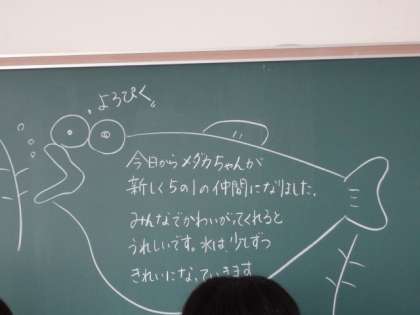 よろぴく
今日からメダカちゃんが
新しく5の1の仲間になりました。
みんなでかわいがってくれると
うれしいです。水は少しずつ
きれいになっていきます